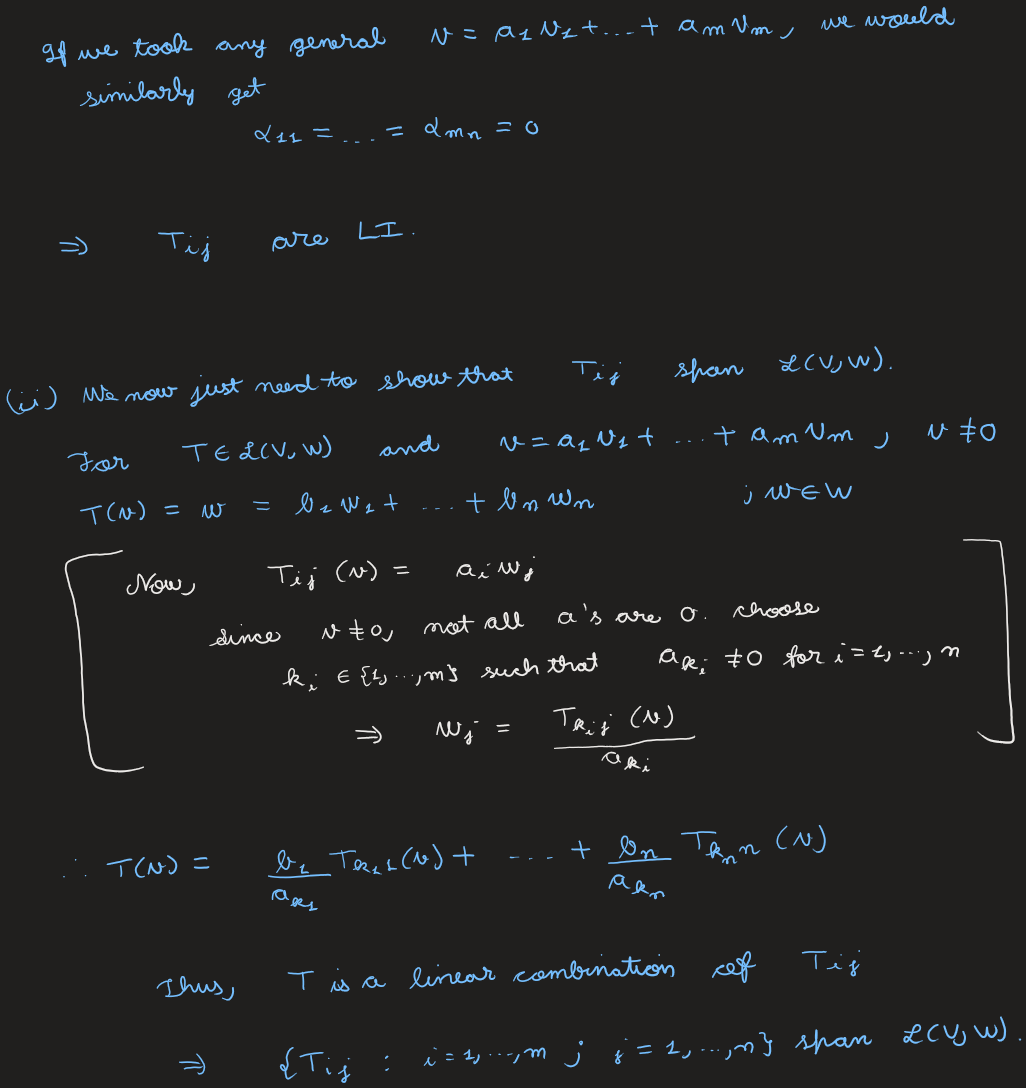 If we took any general v = a₁v₁ + ... + aₘvₘ, we would
similarly get
α₁₁ = ... = αₘₙ = 0
⇒ Tᵢⱼ are LI.
(ii) We now just need to show that Tᵢⱼ span ℒ(V,W).
For T ∈ ℒ(V,W) and v = a₁v₁ + ... + aₘvₘ ; v ≠ 0
T(v) = w = b₁w₁ + ... + bₙwₙ ; w ∈ W
Now, Tᵢⱼ(v) = aᵢwⱼ
since v ≠ 0, not all a's are 0. choose
kᵢ ∈ {1,...,m} such that a_{kᵢ} ≠ 0 for i = 1,...,n
⇒ wⱼ = T_{kᵢj}(v) / a_{kᵢ}
∴ T(v) = b₁/a_{k₁} T_{k₁1}(v) + ... + bₙ/a_{kₙ} T_{kₙn}(v)
Thus, T is a linear combination of Tᵢⱼ
⇒ {Tᵢⱼ : i = 1,...,m ; j = 1,...,n} span ℒ(V,W).